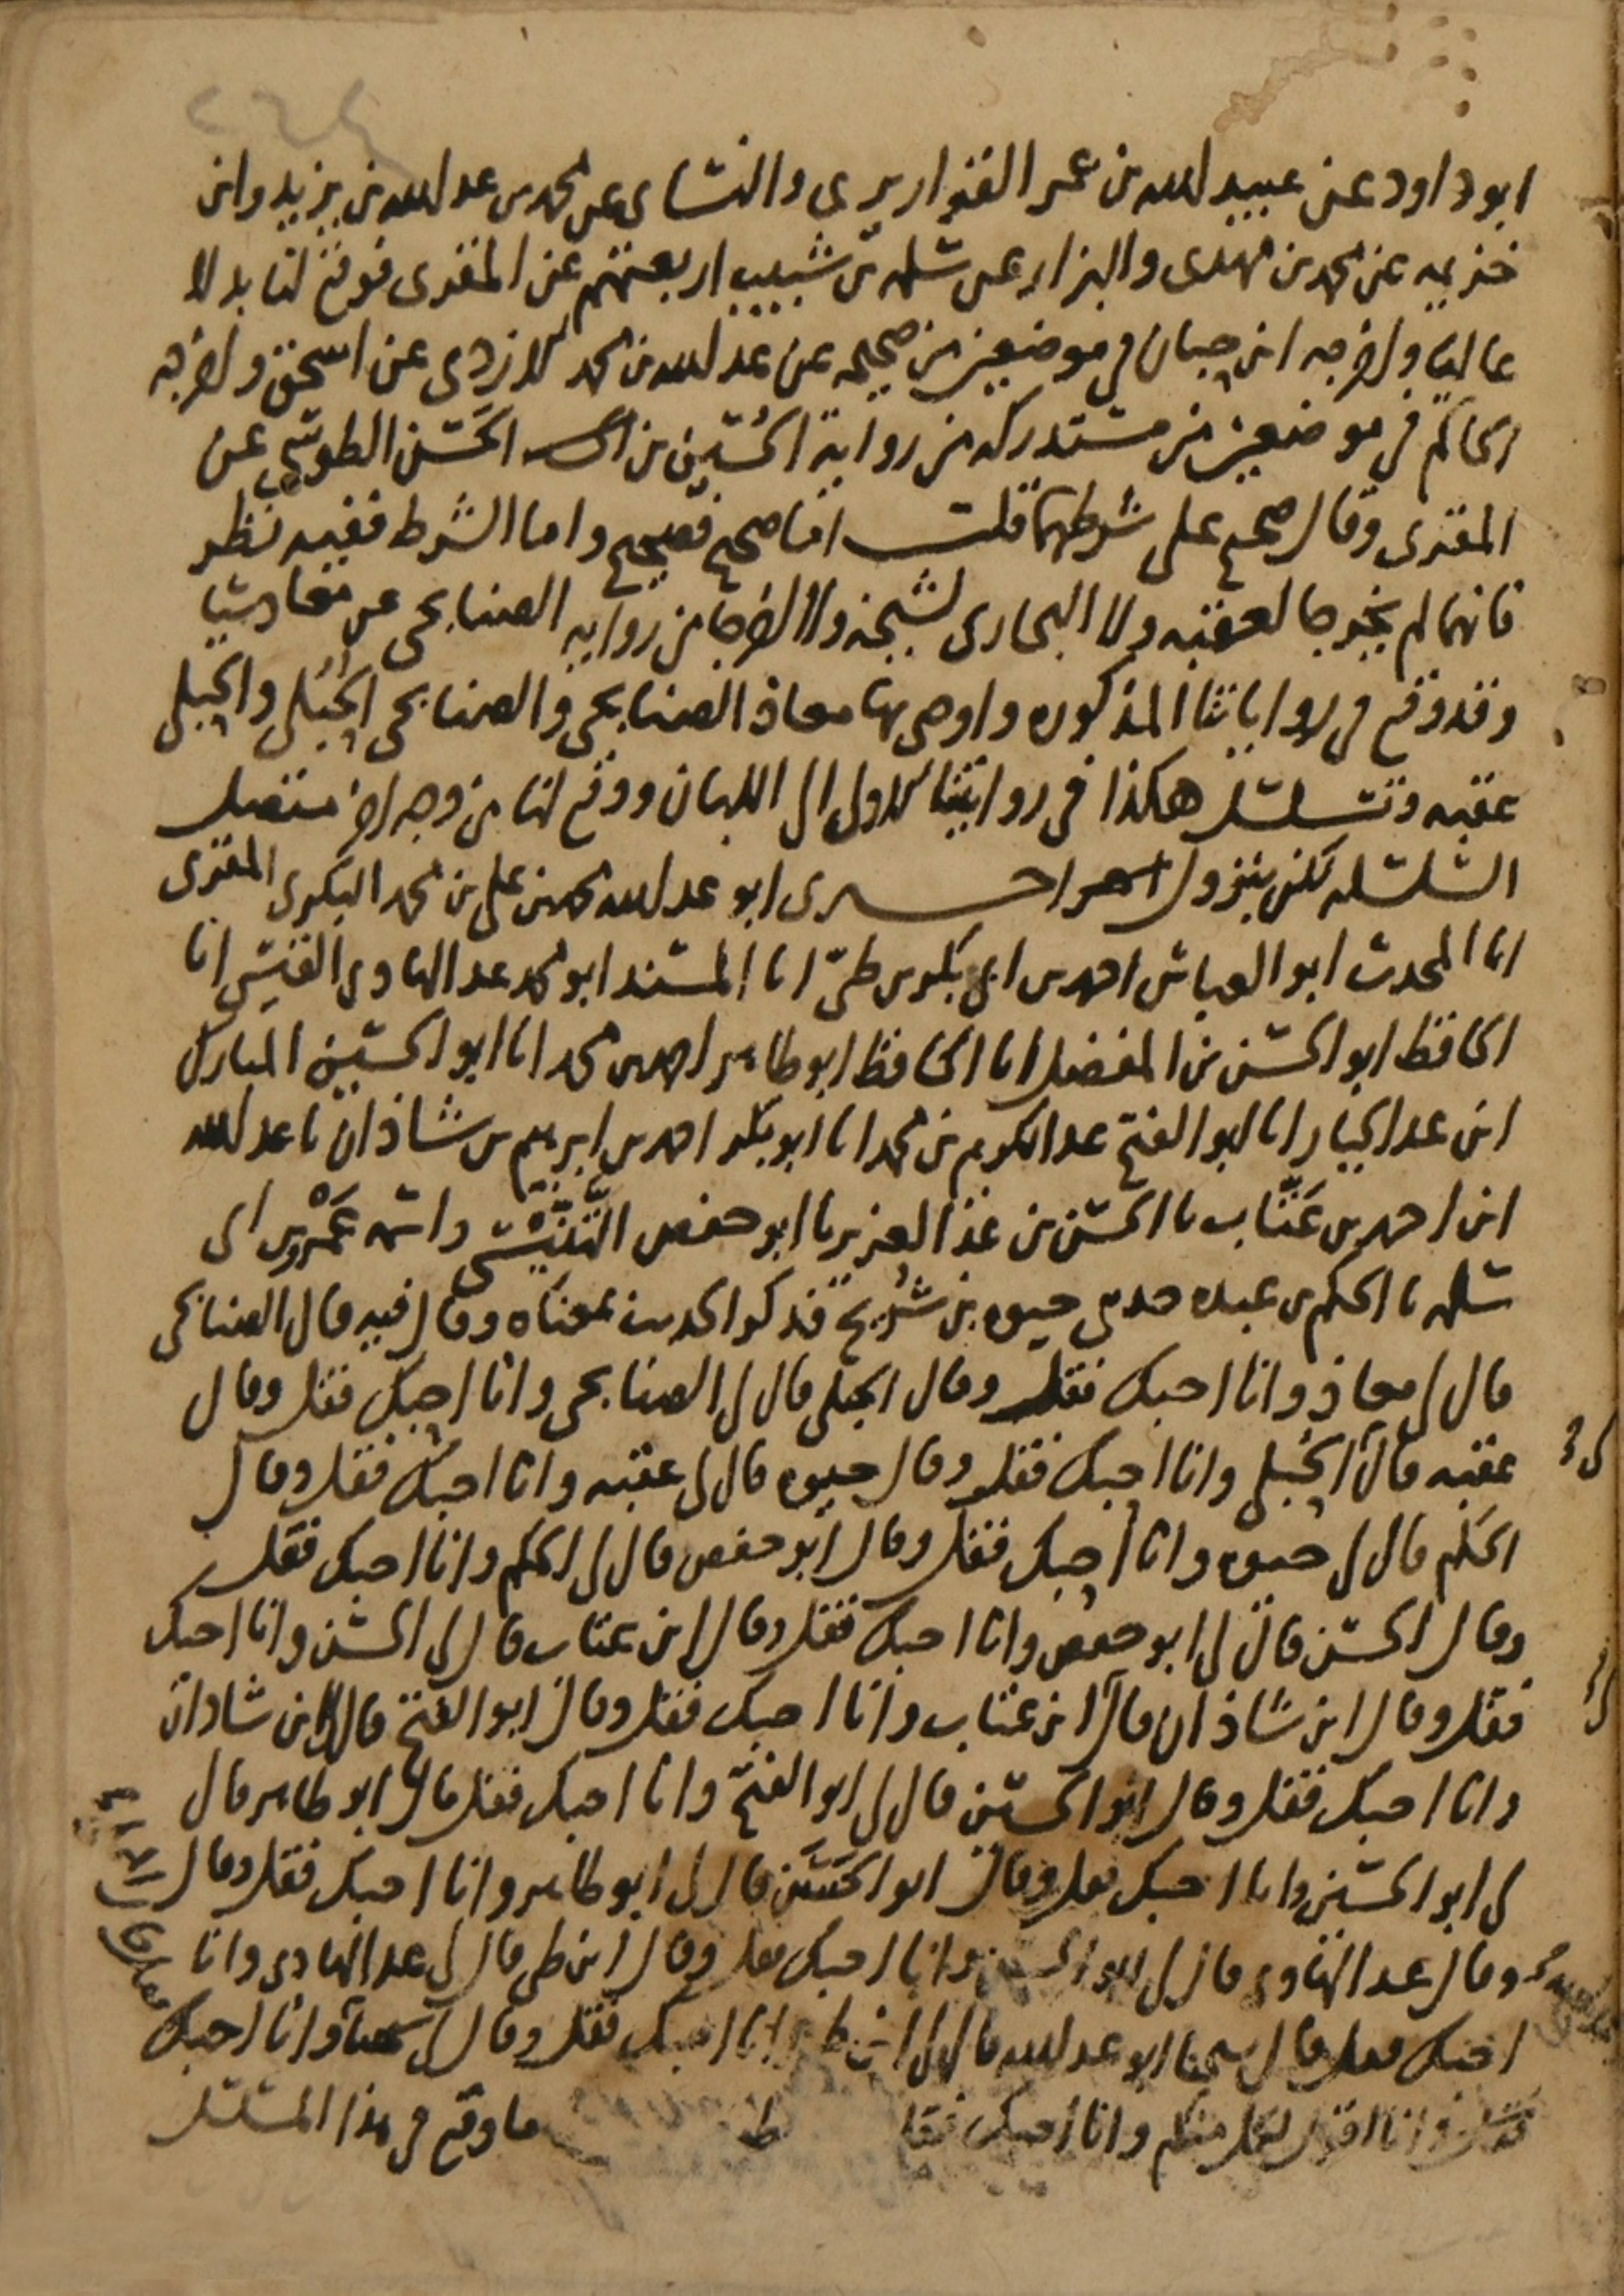 ابو داود عن عبيد الله بن عمر القواريري والنسائي عن محمد بن عبد الله بن يزيد وابن
خزيمه عن محمد بن مهدى والبزار عن سلمه بن شبيب اربعتهم عن المقرى فوقع لنا بدلا
عاليا واخرجه ابن حبان في موضعين من صحيحه عن عبد الله بن محمد الازدى عن اسحق واخرجه
الحاكم في موضعين من مستدركه من رواية الحسين بن الحسن الطوسي عن
المقرى وقال صحيح على شرطهما قلت اما صحيح فصحيح واما الشرط ففيه نظر
فانهما لم يخرجا لعقبه ولا البخارى لشيخه ولا اخرجا من روايه الصنابحى عن معاذ شيا
وقد وقع في رواياتنا المذكوره واوصى بها معاذ الصنابحى والصنابحى الحبلى والحبلى
عقبه وتسلسل هكذا في روايتنا الاولى الى اللبان ووقع لنا من وجه اخر متصل
السلسله لكن بنزول اخبرنى ابو عبد الله محمد بن على بن محمد البكرى المقرى
انا المحدث ابو العباس احمد بن ابى بكر بن طى انا المسند ابو محمد عبد الهادى القيسى انا
الحافظ ابو الحسن بن المفضل انا الحافظ ابو طاهر احمد بن محمد انا ابو الحسين المبارك
ابن عبد الجبار انا ابو الفتح عبد الكريم بن محمد انا ابو بكر احمد بن ابرهيم بن شاذان نا عبد الله
ابن احمد بن عتاب نا الحسن بن عبد العزيز نا ابو حفص التنيسى واسمه عمرو بن ابى
سلمه نا الحكم بن عبده حدثنى حيوه بن شريح فذكر الحديث بمعناه وقال فيه قال الصنابحى
قال لى معاذ وانا احبك فقل وقال الحبلى قال لى الصنابحى وانا احبك فقل وقال
عقبه قال الحبلى وانا احبك فقل وقال حيوه قال لى عقبه وانا احبك فقل وقال
الحكم قال لى حيوه وانا احبك فقل وقال ابو حفص قال لى الحكم وانا احبك فقل
وقال الحسن قال لى ابو حفص وانا احبك فقل وقال ابن عتاب قال لى الحسن وانا احبك
فقل وقال ابن شاذان قال ابن عتاب وانا احبك فقل وقال ابو الفتح قال لى ابن شاذان
وانا احبك فقل وقال ابو الحسين قال لى ابو الفتح وانا احبك فقل قال ابو طاهر قال
لى ابو الحسين وانا احبك فقل وقال ابو الحسن قال لى ابو طاهر وانا احبك فقل وقال
وقال عبد الهادى قال لى ابو الحسن وانا احبك فقل وقال ابن طى قال لى عبد الهادى وانا
احبك فقل وقال شيخنا ابو عبد الله قال لى ابن طى وانا احبك فقل وقال لى شيخنا وانا احبك
فقل وانا اقول لكل منكم وانا احبك فقل ما وقع في هذا المسلسل